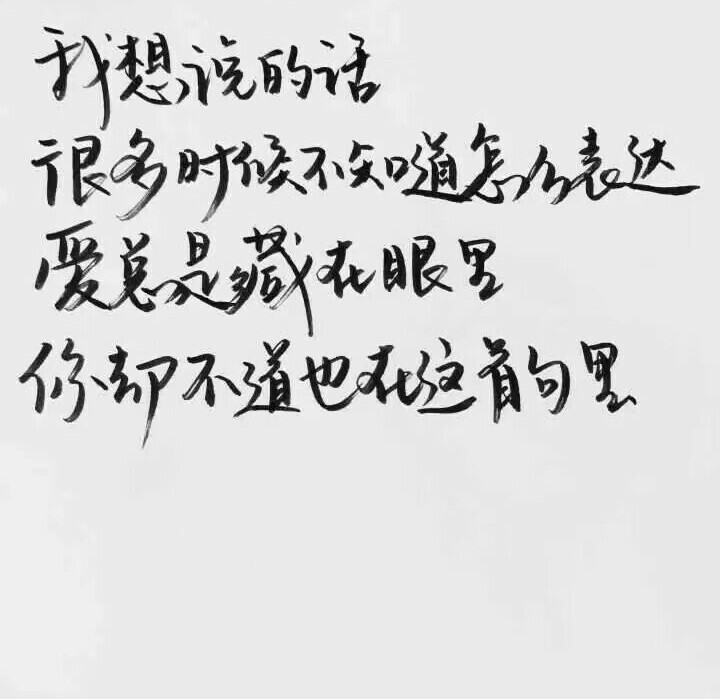 我想说的话
很多时候不知道怎么表达
爱总是藏在眼里
你却不道也在这首句里